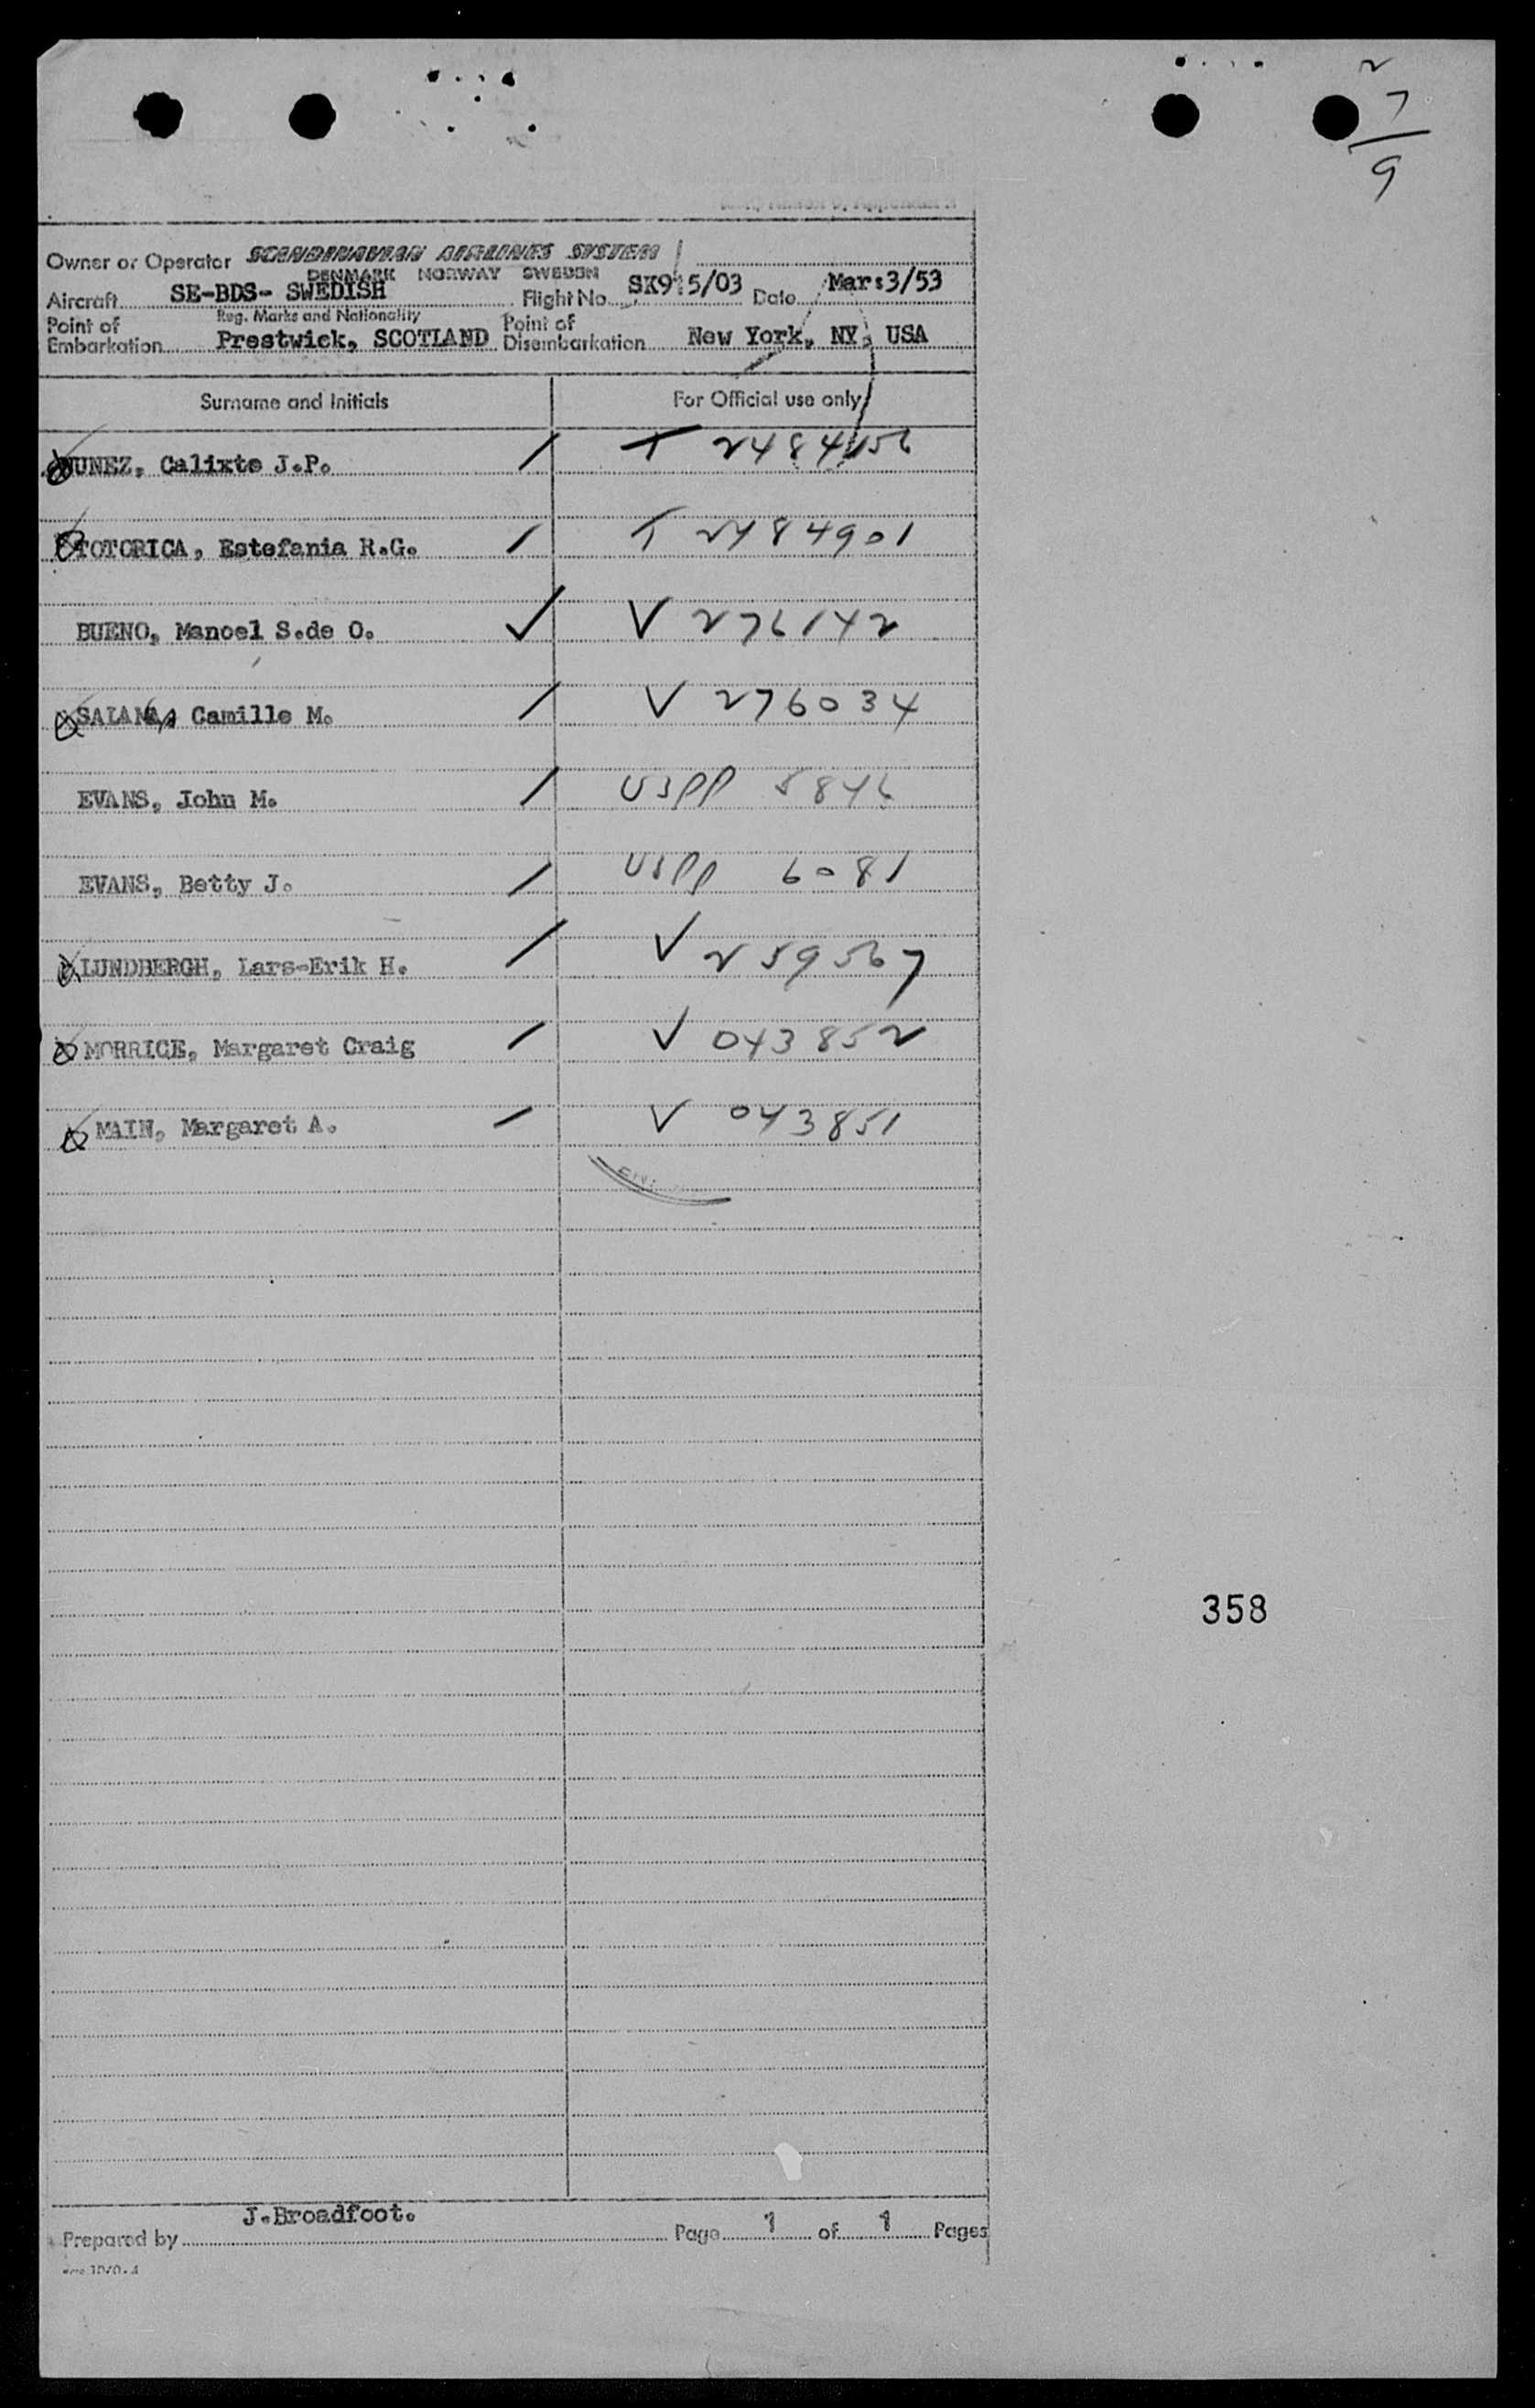 2
7
9
Owner or Operator SCANDINAVIAN AIRLINES SYSTEM
DENMARK NORWAY SWEDEN
Aircraft SE-BDS- SWEDISH Flight No. SK915/03 Date Mar:3/53
Reg. Marks and Nationality
Point of Embarkation Prestwick, SCOTLAND Point of Disembarkation New York, NY, USA
Surname and Initials For Official use only
NUNEZ, Calixto J.P. T 2484156
TOTORICA, Estefania R.G. T 2484901
BUENO, Manoel S.de O. V 276142
SALAMA, Camille M. V 276034
EVANS, John M. USPP 5846
EVANS, Betty J. USPP 6081
LUNDBERGH, Lars-Erik H. V 259567
MORRICE, Margaret Craig V 043852
MAIN, Margaret A. V 043851
358
J.Broadfoot.
Prepared by Page 1 of 1 Pages